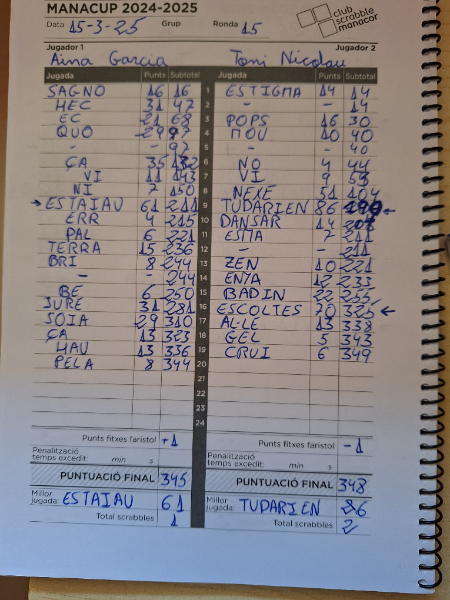 MANACUP 2024-2025
club scrabble manacor
Data 15-3-25 Grup Ronda 15
Jugador 1 Jugador 2
Aina Garcia Toni Nicolau
Jugada Punts Subtotal Jugada Punts Subtotal
SAGNO 16 16 1 ESTIGMA 14 14
HEC 31 47 2 - - 14
EC 21 68 3 POPS 16 30
QUO 29 97 4 MOU 10 40
- - 97 5 - - 40
ÇA 35 132 6 NO 4 44
VI 11 143 7 VI 9 53
NI 7 150 8 NEXE 51 104
→ ESTAIAU 61 211 9 TUDARIEN 86 190 ←
ERR 4 215 10 DANSAR 14 204
PAL 6 221 11 ESMA 7 211
TERRA 15 236 12 - - 211
BRI 8 244 13 ZEN 10 221
- - 244 14 ENYA 12 233
BE 6 250 15 BADIN 22 255
JURÉ 31 281 16 ESCOLTIES 70 325 ←
SOIA 29 310 17 AL·LE 13 338
ÇA 13 323 18 GEL 5 343
HAU 13 336 19 CRUI 6 349
PELA 8 344 20
21
22
23
24
Punts fitxes faristol +1 Punts fitxes faristol -1
Penalització temps excedit: min s Penalització temps excedit: min s
PUNTUACIÓ FINAL 345 PUNTUACIÓ FINAL 348
Millor jugada: ESTAIAU 61 Millor jugada: TUDARIEN 86
Total scrabbles 1 Total scrabbles 2